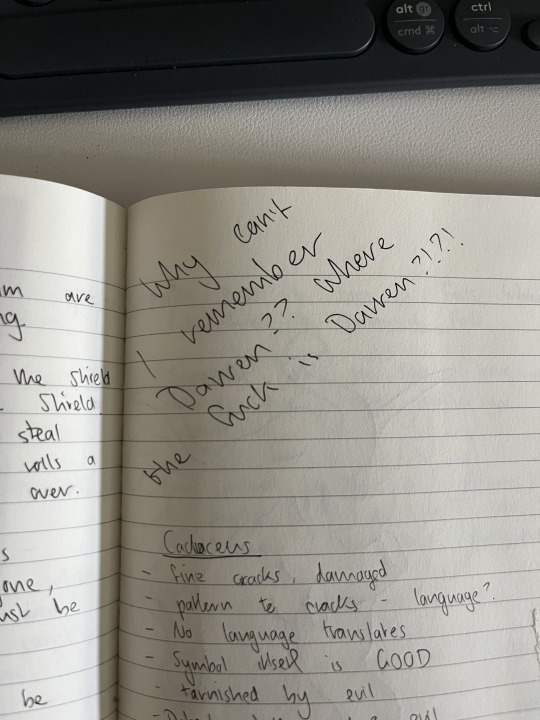 alt gr
cmd ⌘
ctrl
alt ⌥
are
the shield
Shield.
steal
rolls a
over.
be
be
Why can't
I remember
Darren?? Where
the fuck is Darren?!?!
Caduceus
- fine cracks, damaged
- pattern to cracks - language?
- No language translates
- Symbol itself is GOOD
- tarnished by evil
evil